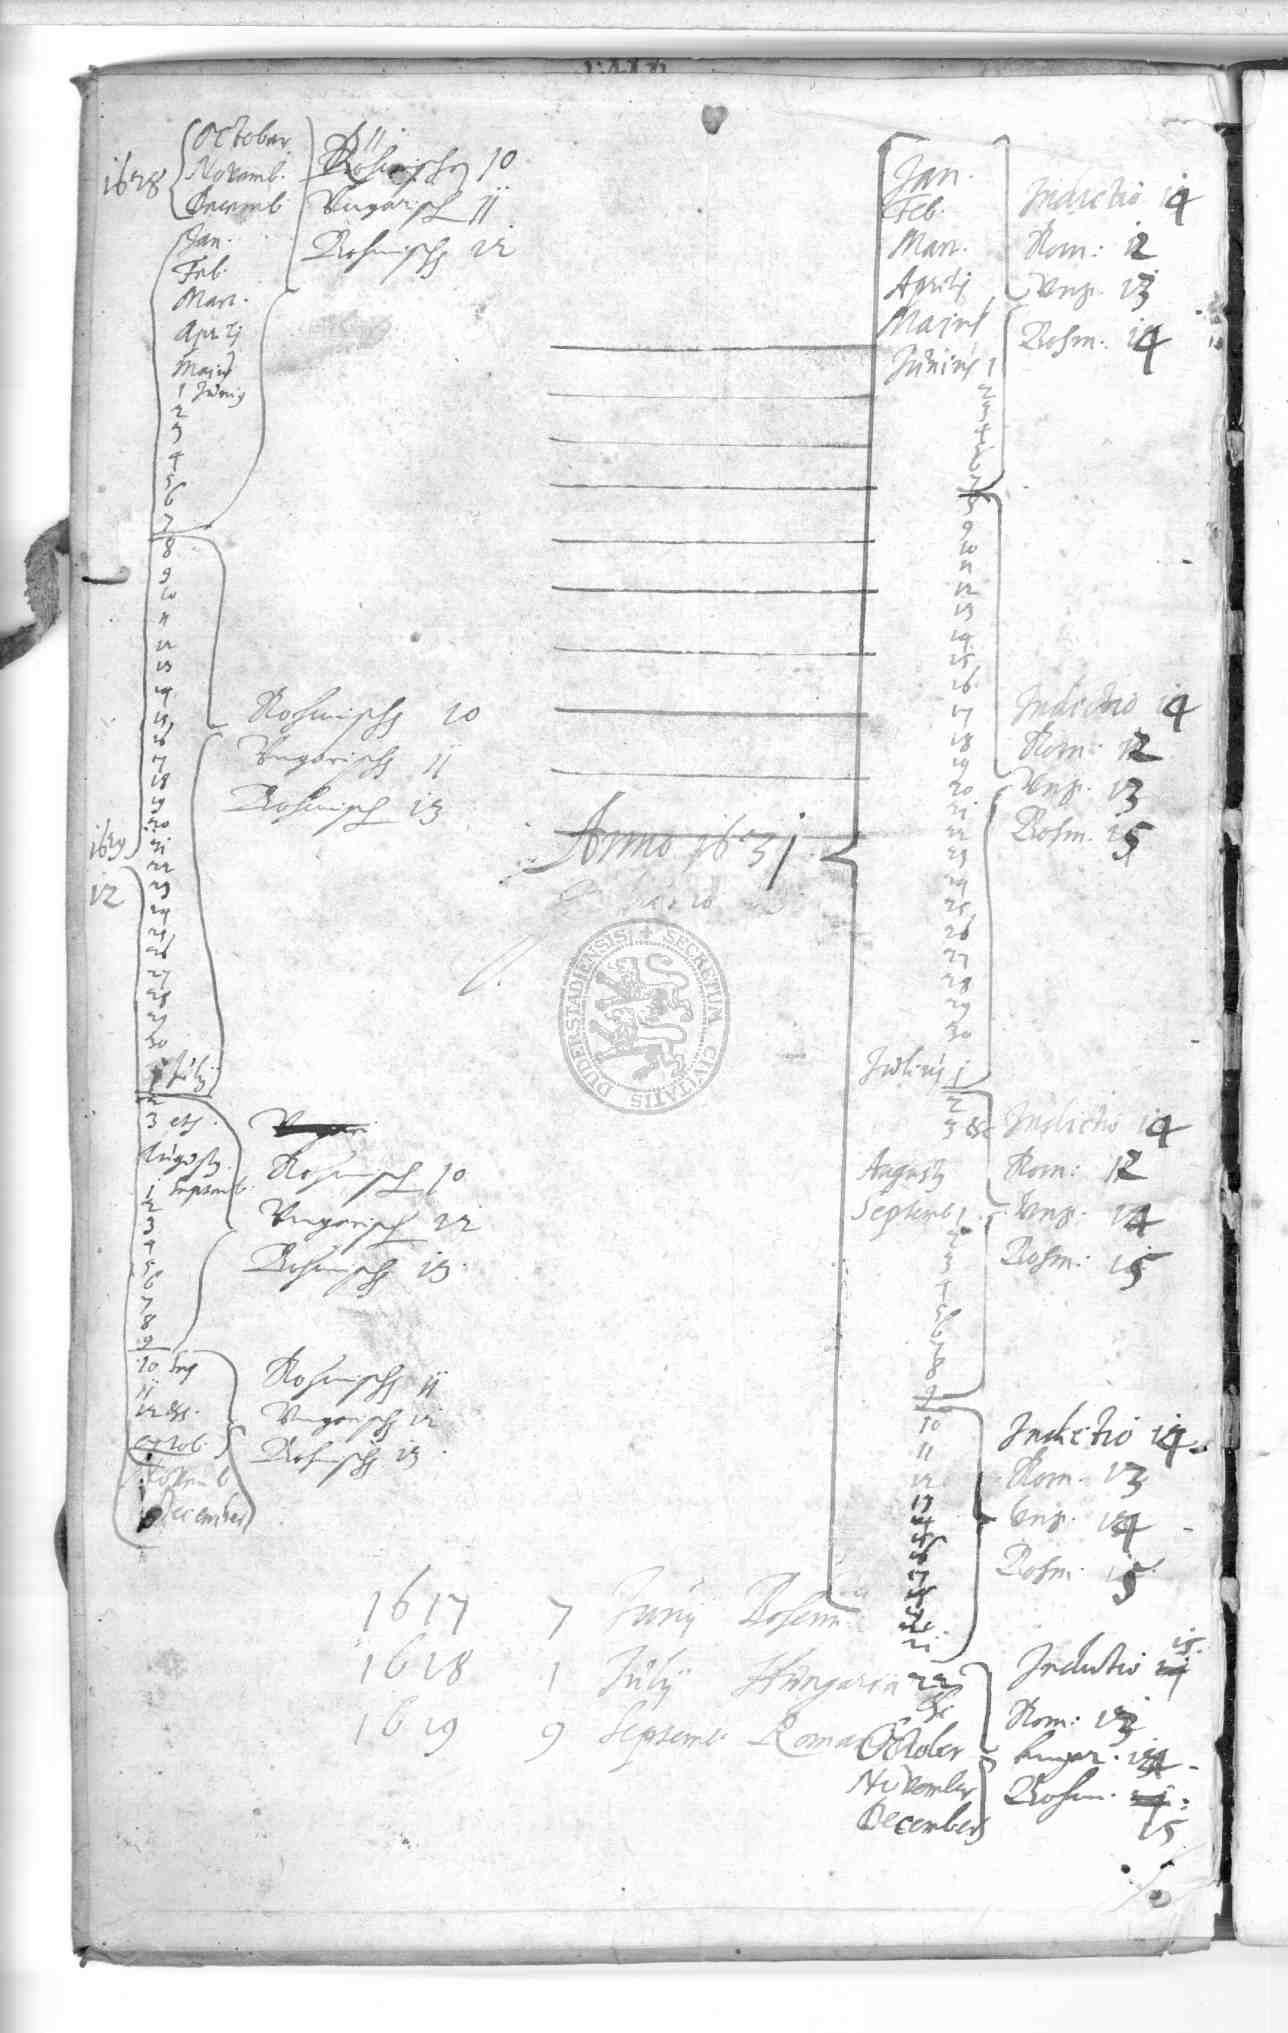 1628
October
Novemb.
Decemb
Röhmischen 10
Ungarisch 11
Bohmisch 12
Jan.
Feb.
Mart.
Aprilj
Maius
1 Junij
2
3
4
5
6
7
8
9
10
11
12
13
14
15
16
17
18
19
20
21
22
23
24
25
26
27
28
29
30
1 Julij
2
3 etc.
Augusti
1 Septemb.
2
3
4
5
6
7
8
9
10 Sep
11
12 etc.
October
Novemb
December
1629
12
Rohmisch 10
Ungarisch 11
Bohmisch 13
Rohmisch 10
Ungarisch 12
Bohmisch 13
Rohmisch 11
Ungarisch 12
Bohmisch 13
Anno 1631
DUDERSTADIENSIS SECRETUM CIVITATIS
Jan.
Feb.
Mart.
Aprilj
Majus
Junius 1
2
3
4
5
6
7
8
9
10
11
12
13
14
15
16
17
18
19
20
21
22
23
24
25
26
27
28
29
30
Julius 1
2
3 etc
Augusti
Septemb 1
2
3
4
5
6
7
8
9
10
11
12
13
21
22
October
November
December
Indictio 14
Rom: 12
Ung. 13
Bohm: 14
Indictio 14
Rom: 12
Ung. 13
Bohm. 15
Indictio 14
Rom: 12
Ung. 14
Bohm: 15
Indictio 14
Rom. 13
Ung. 14
Bohm. 15
Indictio 15
Rom: 13
Ungar. 14
Bohm. 15
1617 7 Junij Bohem.
1618 1 Julij Hungaria
1619 9 Septemb. Roma